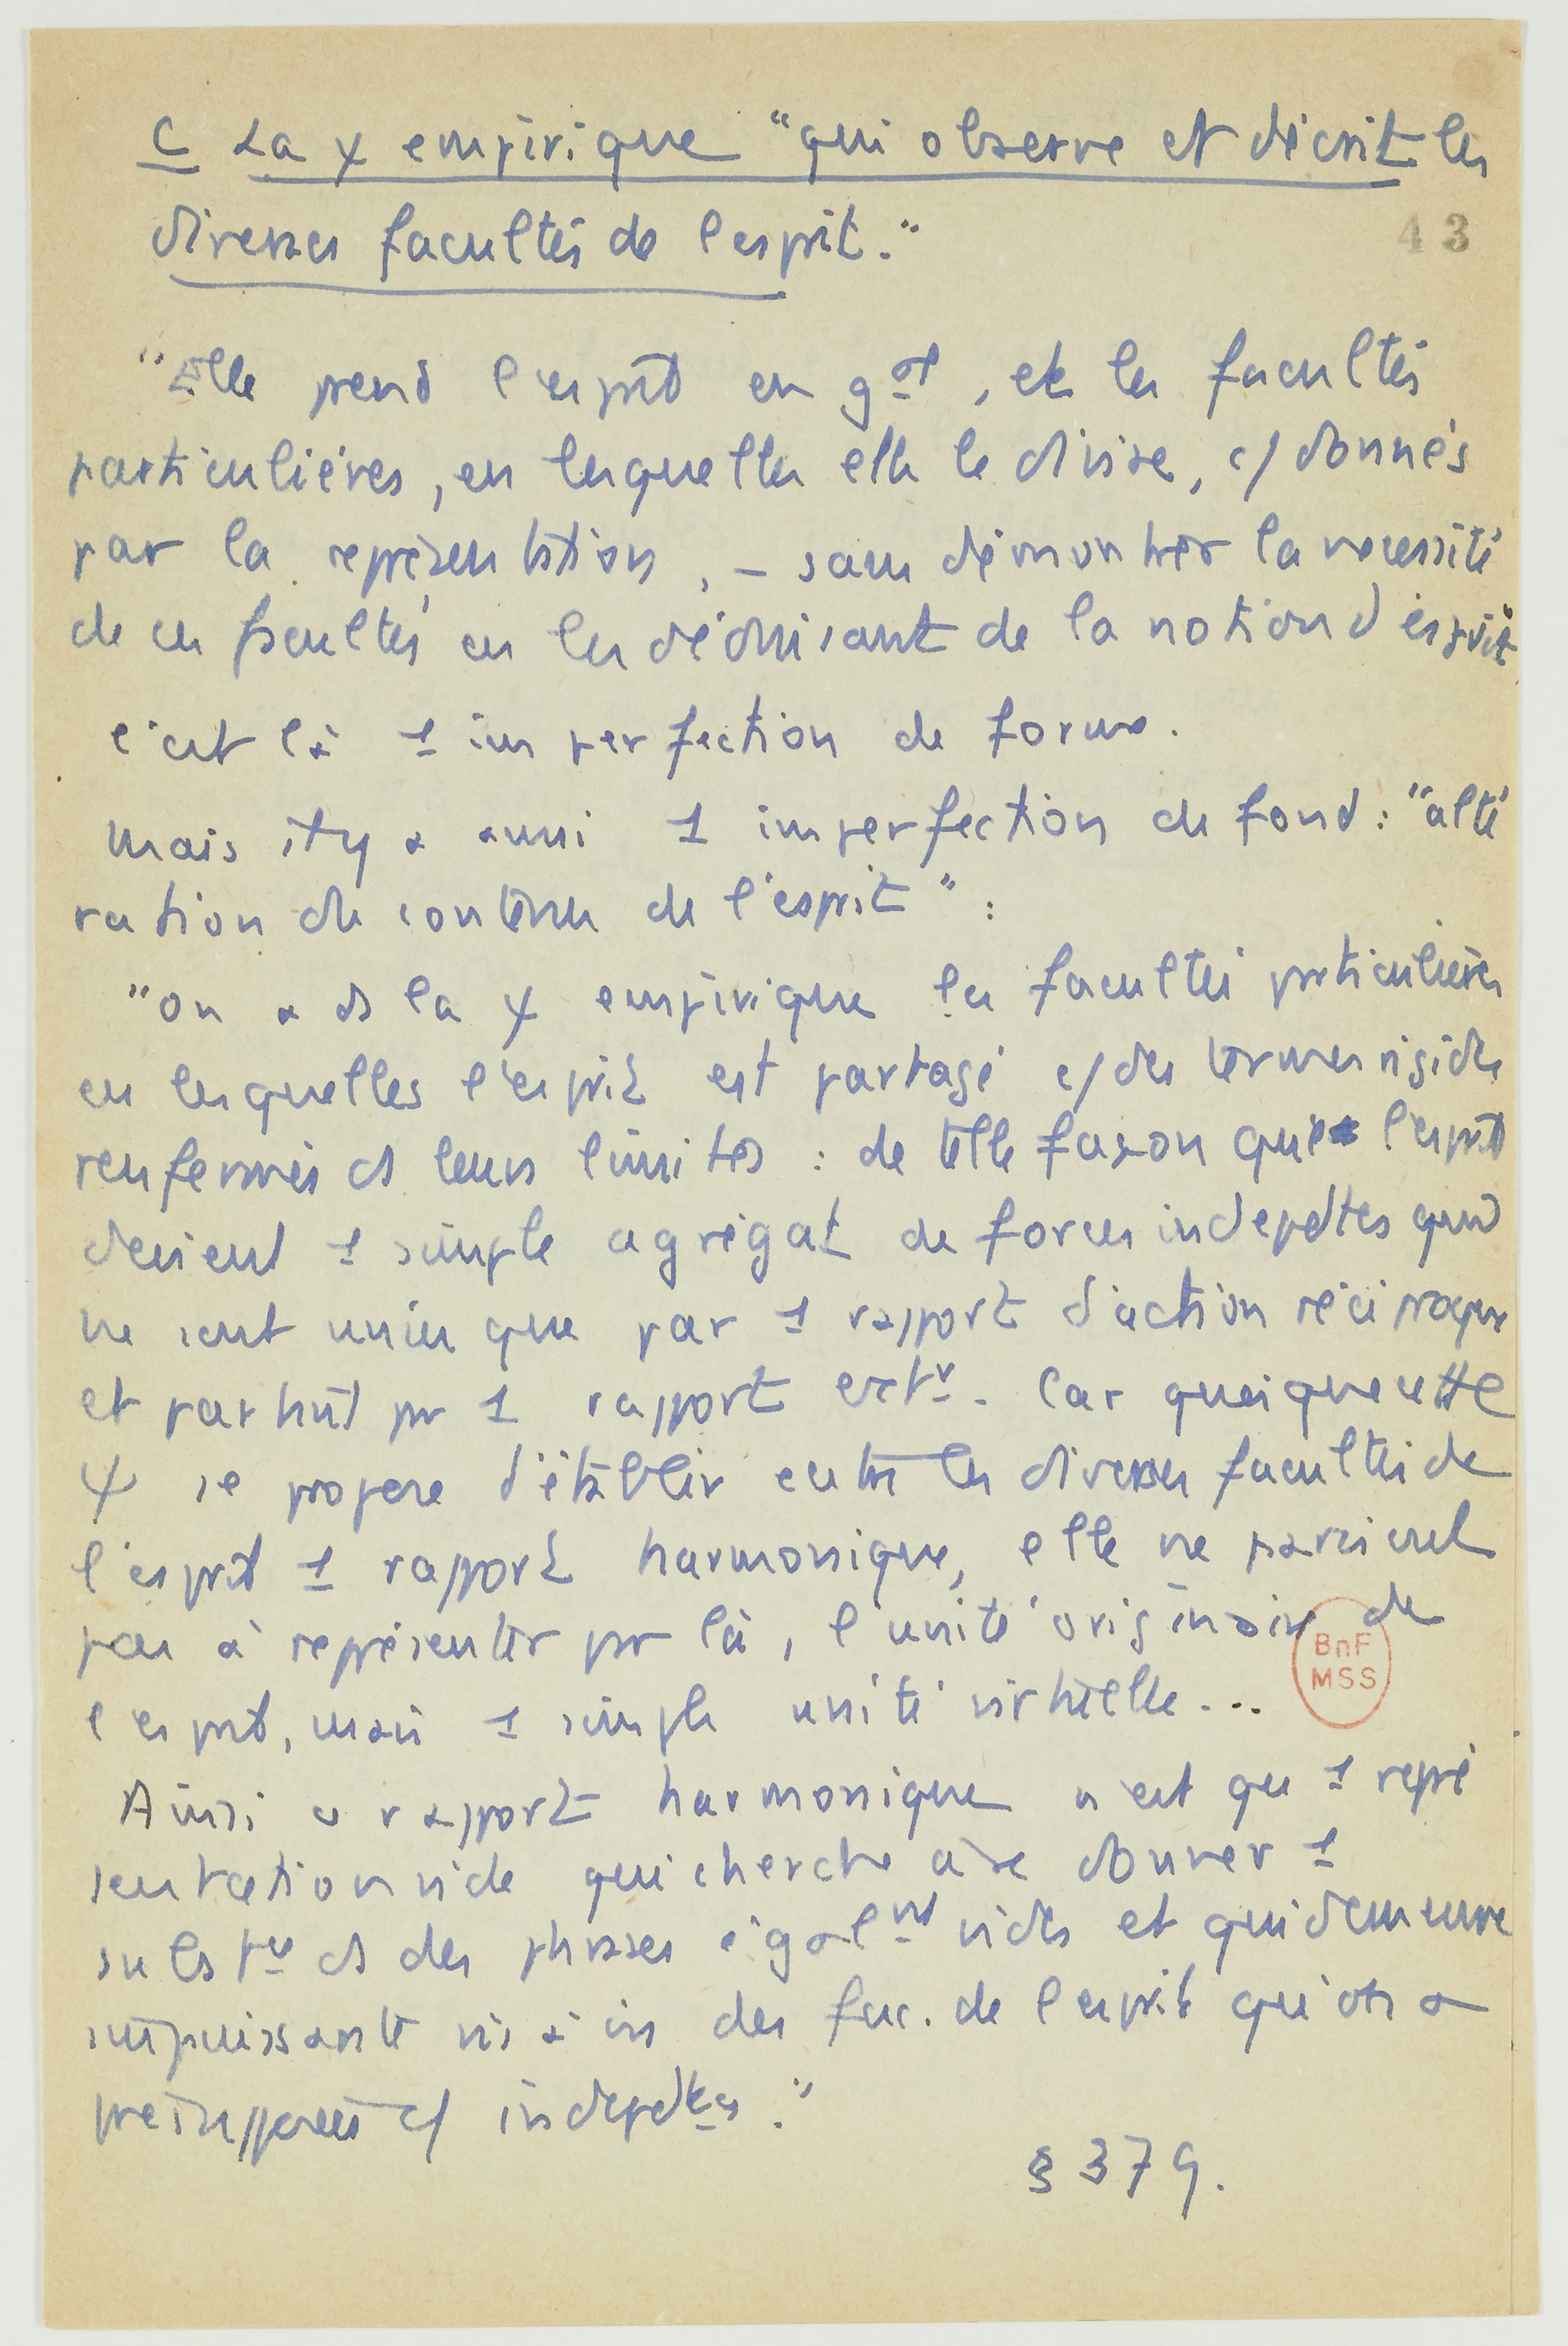 C La ψ empirique "qui observe et décrit les
diverses facultés de l'esprit."
43
"Elle prend l'esprit en gal, et les facultés
particulières, en lesquelles elle le divise, c/ donnés
par la représentation, – sans démontrer la nécessité
de ces facultés en les déduisant de la notion d'esprit
c'est là 1 imperfection de forme.
Mais il y a aussi 1 imperfection de fond : "alté
ration du contenu de l'esprit" :
"on a ds la ψ empirique les facultés particulières
en lesquelles l'esprit est partagé c/ des termes rigides
renfermés ds leurs limites : de telle façon que l'esprit
devient 1 simple agrégat de forces indepdtes qui
ne sont unies que par 1 rapport d'action réciproque
et partant pr 1 rapport extr. Car quoique cette
ψ se propose d'établir entre les diverses facultés de
l'esprit 1 rapport harmonique, elle ne parvient
pas à représenter pr là, l'unité originaire de
l'esprit, mais 1 simple unité virtuelle...
BnF
MSS
Ainsi ce rapport harmonique n'est qu 1 repré
sentation vide qui cherche à se donner 1
ds des phrases égalnt vides et qui demeure
impuissante vis à vis des fac. de l'esprit qu'on a
présupposées c/ indepdtes."
§ 379.